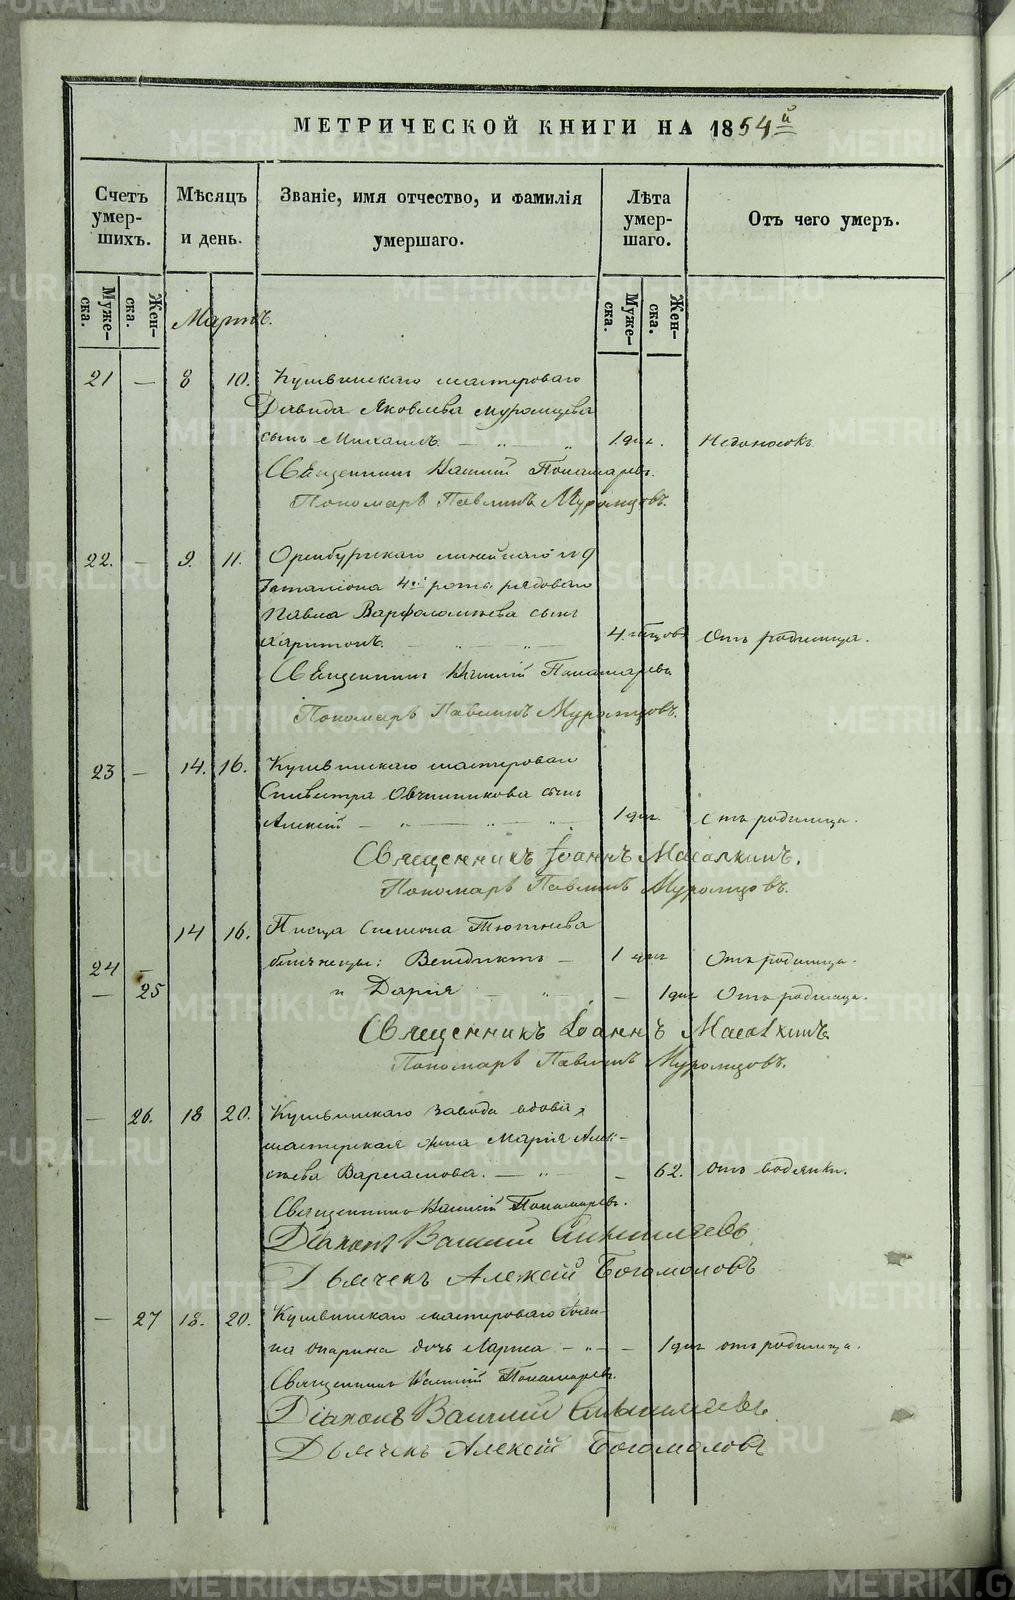 МЕТРИЧЕСКОЙ КНИГИ НА 1854й
Счетъ умер-шихъ.
Мѣсяцъ и день.
Званіе, имя отчество, и фамилія умершаго.
Лѣта умер-шаго.
Отъ чего умеръ.
Муже-ска.
Жен-ска.
Муже-ска.
Жен-ска.
Мартъ.
21 — 8 10. Кушвинскаго мастероваго
Давида Яковлева Муромцева
сынъ Михаилъ. — „ — „ 1 дня. Недоносокъ
Священникъ Василий Пономаревъ.
Пономарь Павлинъ Муромцовъ.
22. — 9. 11. Оренбургскаго линейнаго №9
баталіона 4й роты рядоваго
Павла Варфоломѣева сынъ
Харитонъ. — „ — „ — 4 мѣсцовъ Отъ родимца.
Священникъ Василий Пономаревъ
Пономарь Павлинъ Муромцовъ.
23 — 14. 16. Кушвинскаго мастероваго
Сильвестра Овчинникова сынъ
Алексѣй — „ — „ — „ 1 дня. Отъ родимца.
Священникъ Іоаннъ Масалкинъ.
Пономарь Павлинъ Муромцовъ.
14 16. Писца Симеона Тютнева
24 — близнецы: Венедиктъ — 1 дня Отъ родимца.
— 25 и Дарія — „ — 1 дня Отъ родимца.
Священникъ Іоаннъ Масалкинъ.
Пономарь Павлинъ Муромцовъ.
— 26. 18 20. Кушвинскаго завода вдова,
мастерская жена Марія Алек-
сѣева Варламова. — „ — — 62. отъ водянки.
Священникъ Василій Пономаревъ.
Діаконъ Василий
Дьячекъ Алексій Богомоловъ
— 27 18. 20. Кушвинскаго мастероваго Іоан-
на Опарина дочь Лариса — „ — — 1 дня отъ родимца.
Священникъ Василій Пономаревъ.
Діаконъ Василий
Дьячекъ Алексій Богомоловъ
METRIKI.GASO-URAL.RU